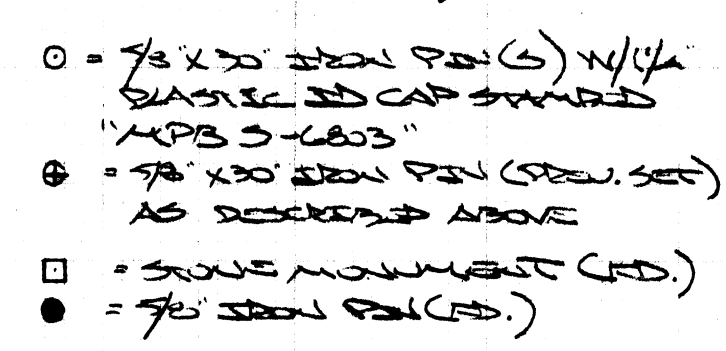 = 5/8" X 30" IRON PIN(S) W/ 1 1/4"
PLASTIC ID CAP STAMPED
"MPB S-6803"
= 5/8" X 30" IRON PIN (PREV. SET)
AS DESCRIBED ABOVE
= STONE MONUMENT (FD.)
= 5/8" IRON PIN (FD.)